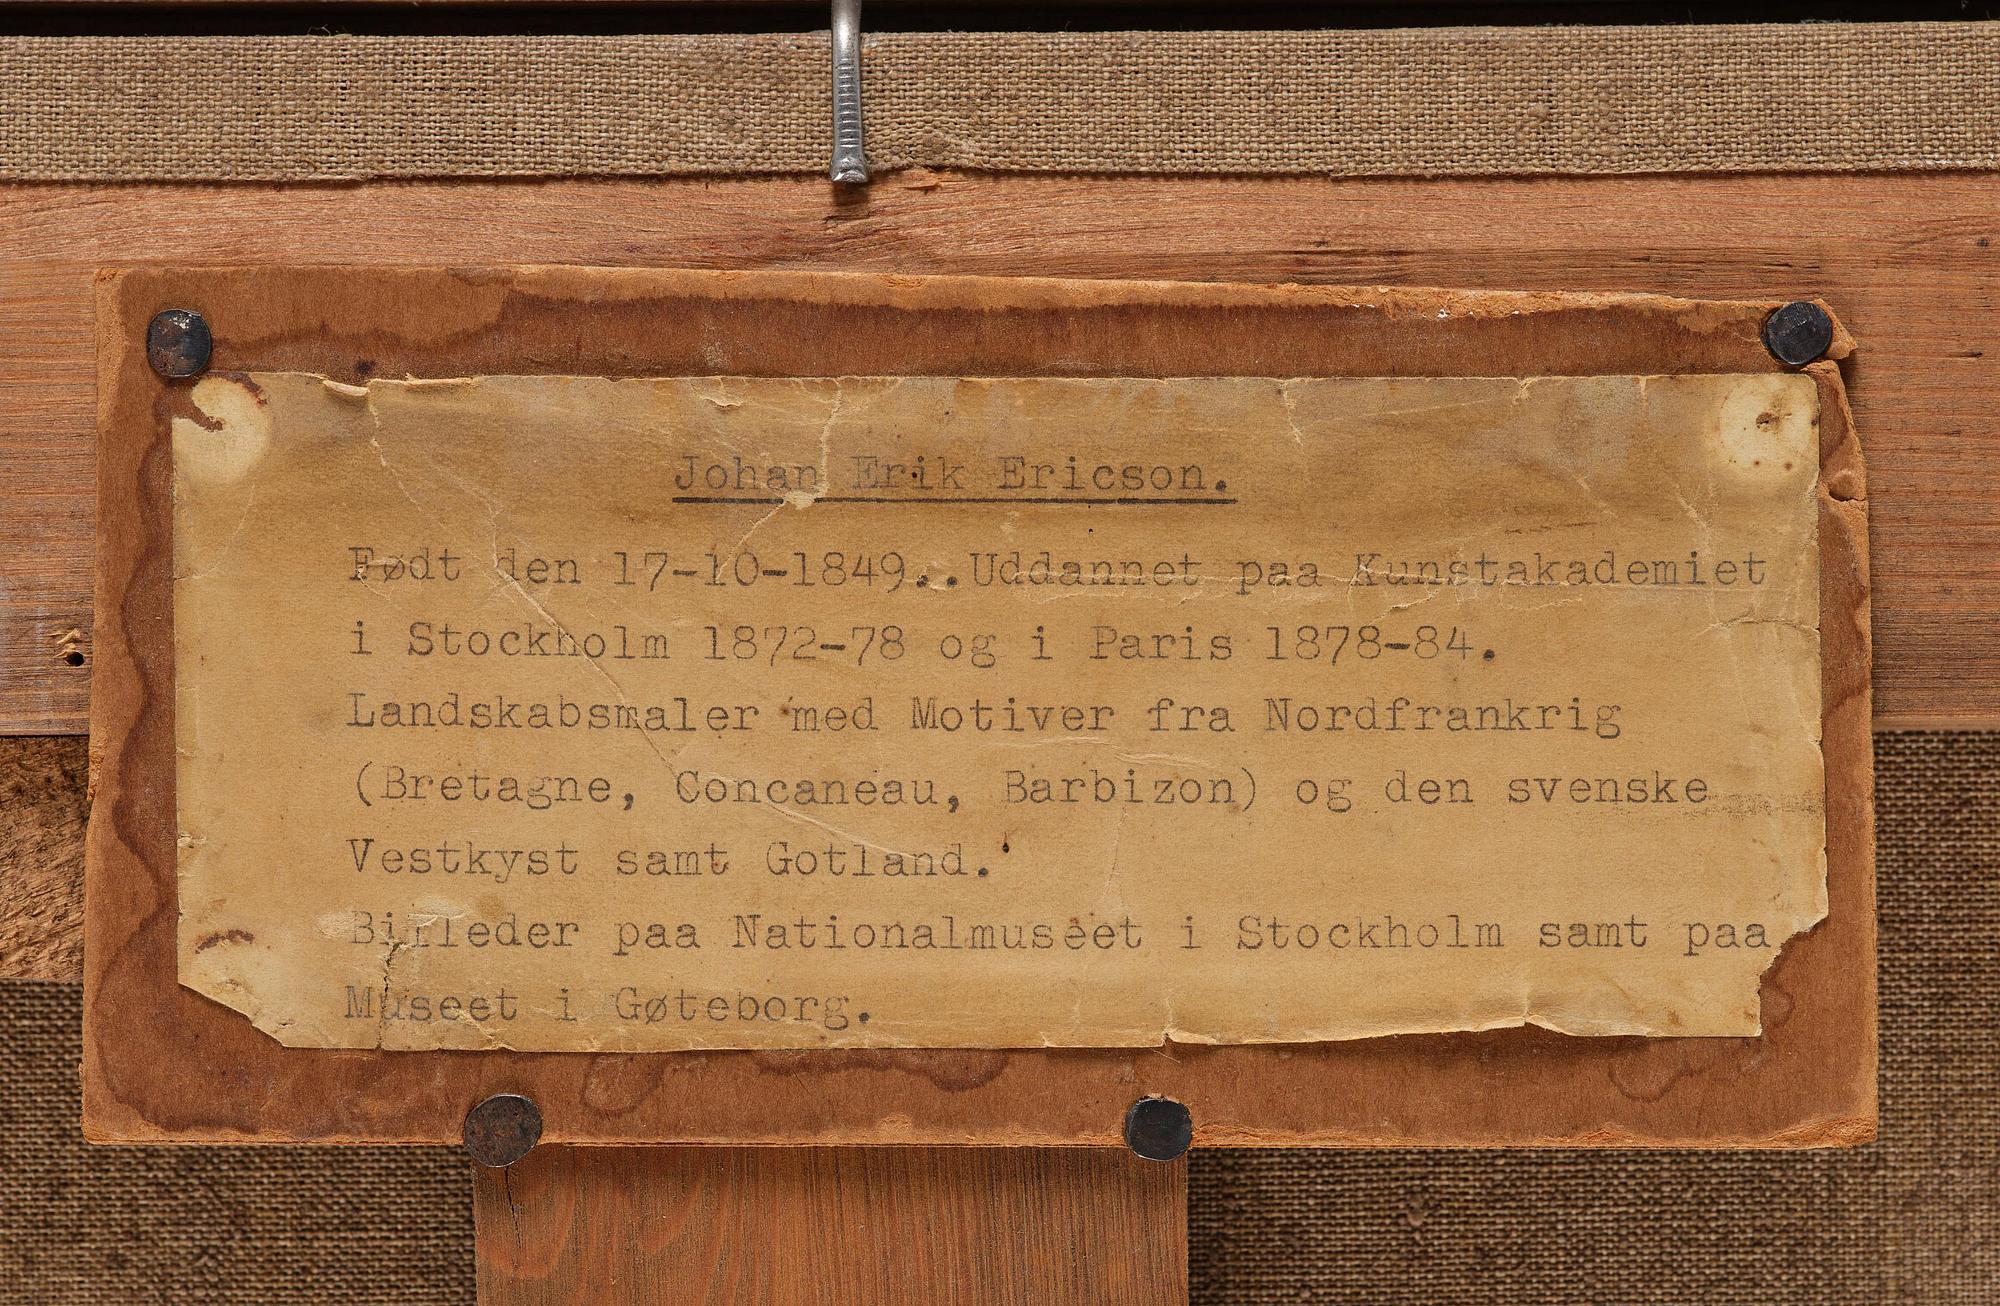 Johan Erik Ericson.
Født den 17-10-1849..Uddannet paa Kunstakademiet
i Stockholm 1872-78 og i Paris 1878-84.
Landskabsmaler med Motiver fra Nordfrankrig
(Bretagne, Concaneau, Barbizon) og den svenske
Vestkyst samt Gotland.
Billeder paa Nationalmuseet i Stockholm samt paa
Museet i Gøteborg.